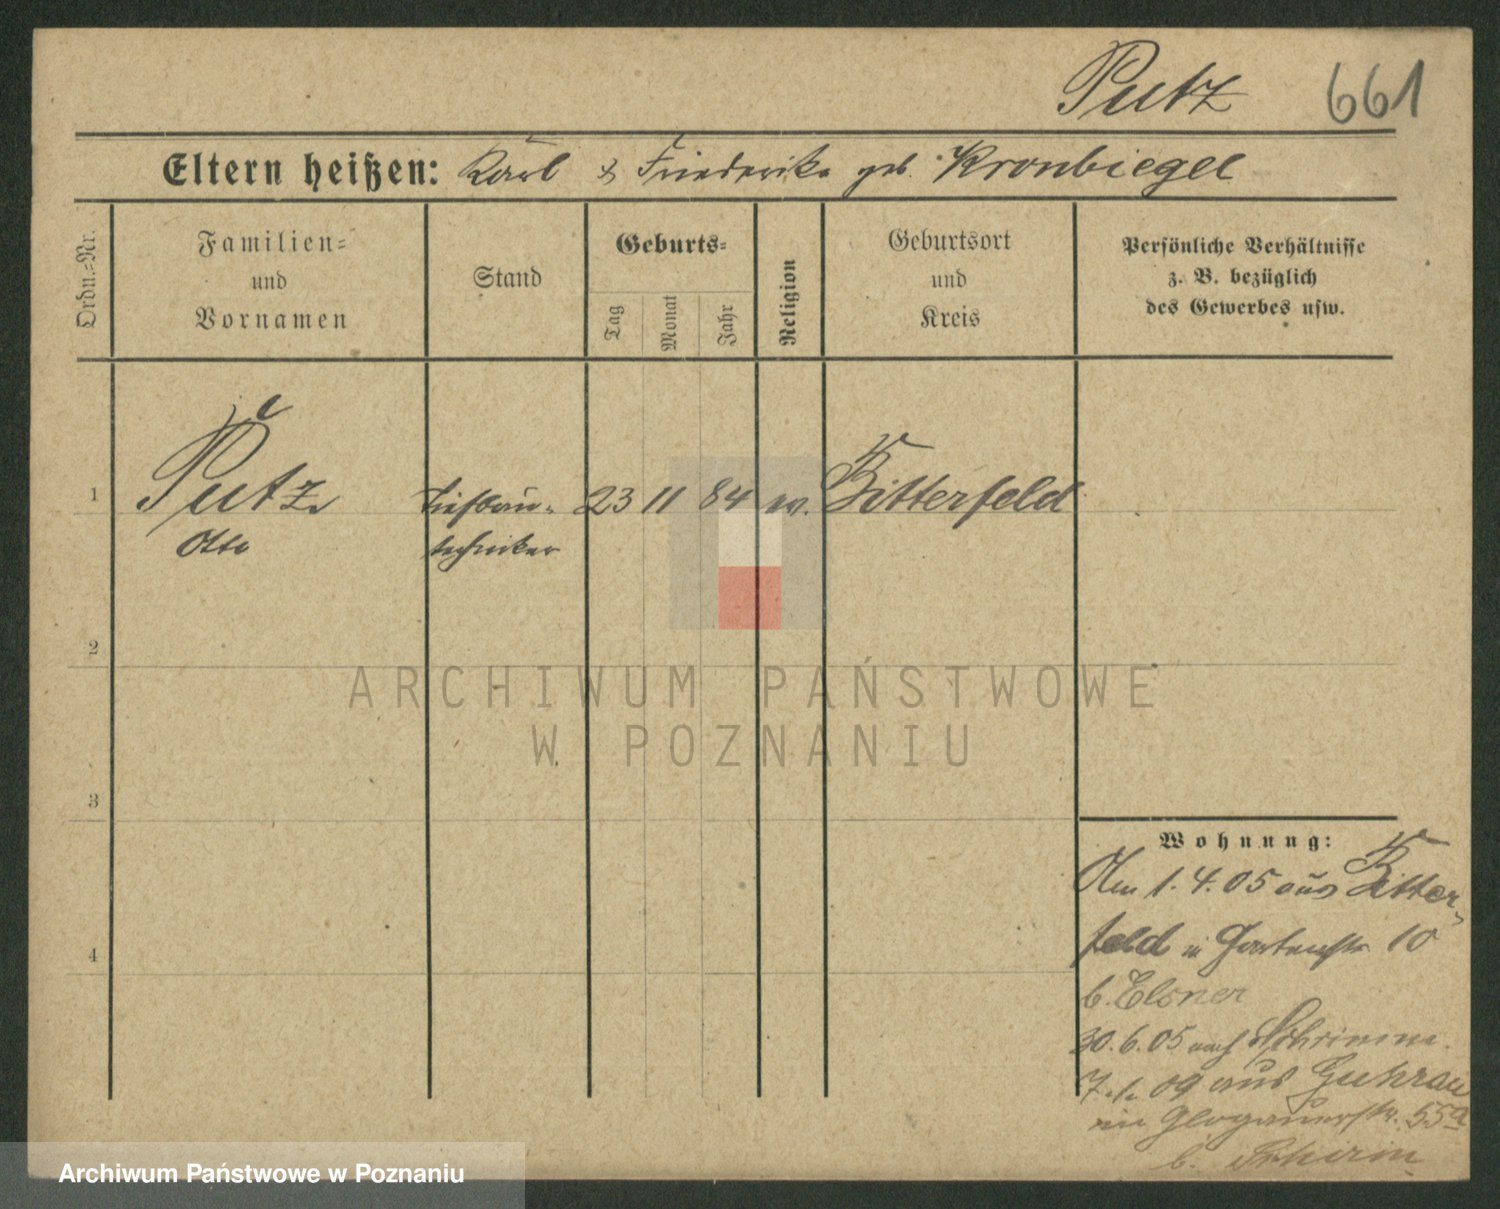 Putz 661
Eltern heißen: Karl & Friederike geb. Kronbiegel
Ordn.=Nr.
Familien=
und
Vornamen
Stand
Geburts=
Tag
Monat
Jahr
Religion
Geburtsort
und
Kreis
Persönliche Verhältnisse
z. B. bezüglich
des Gewerbes usw.
1 Putz Tiefbau- 23 11 84 ev. Bitterfeld
Otto techniker
2
3
4
ARCHIWUM PAŃSTWOWE
W POZNANIU
Wohnung:
Am 1.4.05 aus Bitter-
feld in Gartenstr. 10
b. Elsner
30.6.05 nach Schrimm.
09 aus Guhrau
in Glogauerstr. 55a
b.
Archiwum Państwowe w Poznaniu